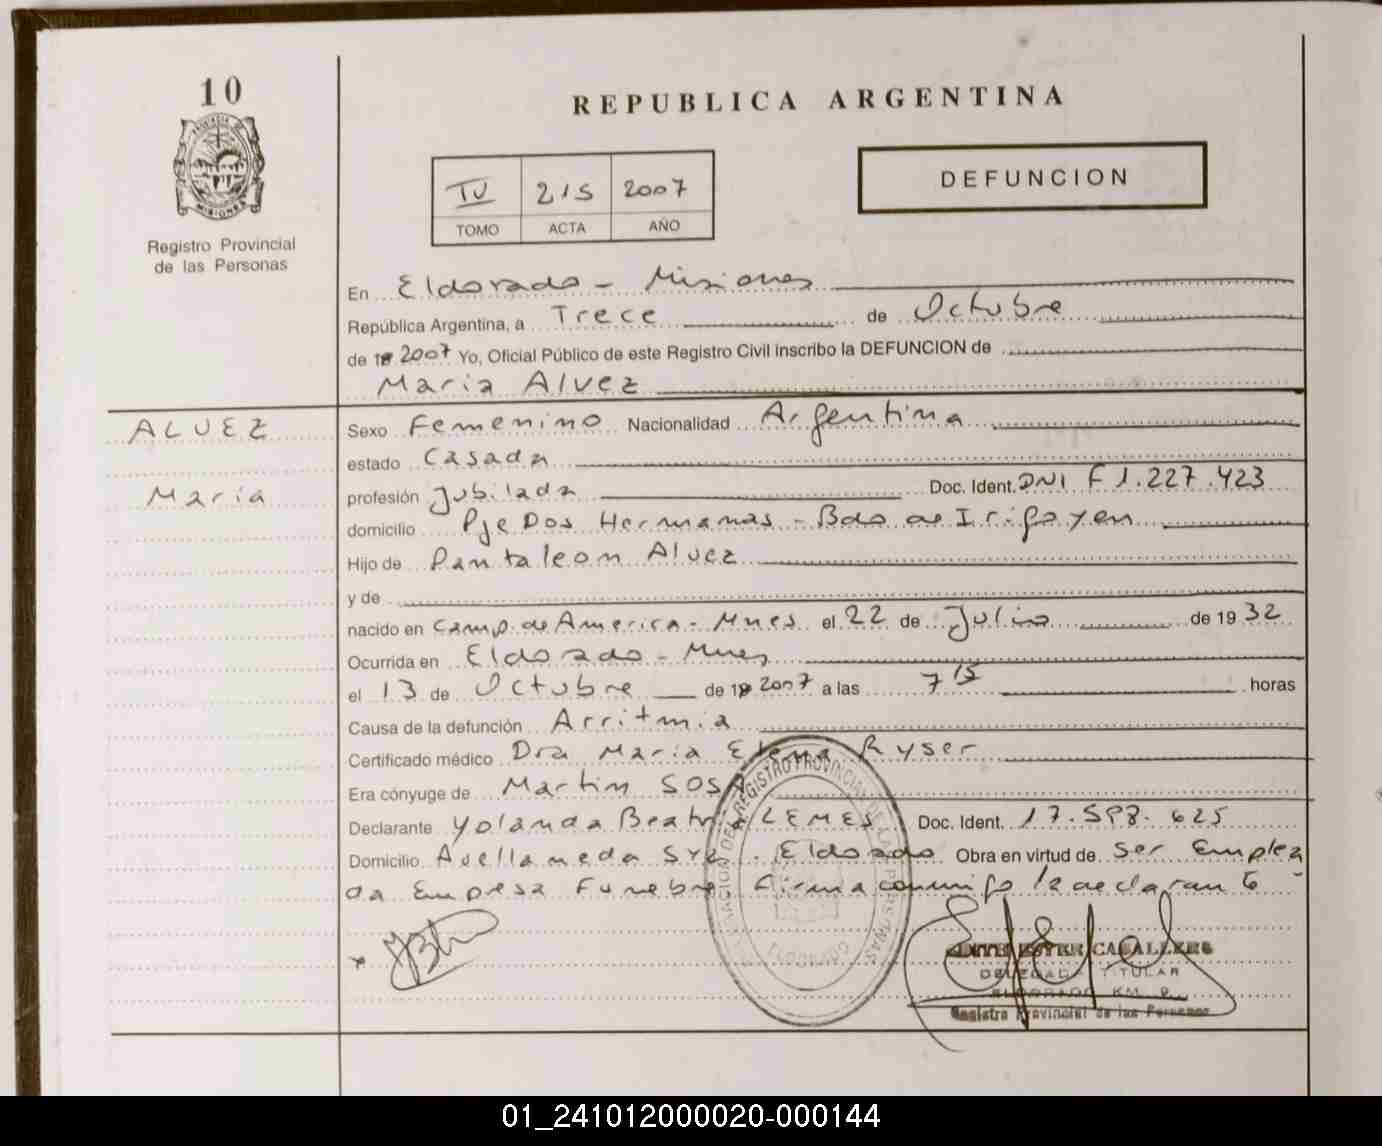 10
REPUBLICA ARGENTINA
DEFUNCION
IV 215 2007
TOMO ACTA AÑO
MISIONES
Registro Provincial
de las Personas
En Eldorado - Misiones
República Argentina, a Trece de Octubre
de 19 2007 Yo, Oficial Público de este Registro Civil inscribo la DEFUNCION de
Maria Alvez
ALVEZ
Maria
Sexo Femenino Nacionalidad Argentina
estado Casada
profesión Jubilada Doc. Ident. DNI F 1.227.423
domicilio Pje Dos Hermanas - Bdo de Irigoyen
Hijo de Pantaleon Alvez
y de
nacido en Camp. de America - Mnes el 22 de Julio de 19 32
Ocurrida en Eldorado - Mnes
el 13 de Octubre de 19 2007 a las 7 15 horas
Causa de la defunción Arritmia
Certificado médico Dra Maria Elena Ryser
Era cónyuge de Martin SOSA
Declarante Yolanda Beatriz LEMES Doc. Ident. 17.598.625
Domicilio Avellaneda S/N. Eldorado Obra en virtud de Ser Emplea
da Empresa Funebre. Firma conmigo la declarante-
CABALLERO
DELEGADA TITULAR
ELDORADO KM. 9
Registro Provincial de las Personas
01_241012000020-000144